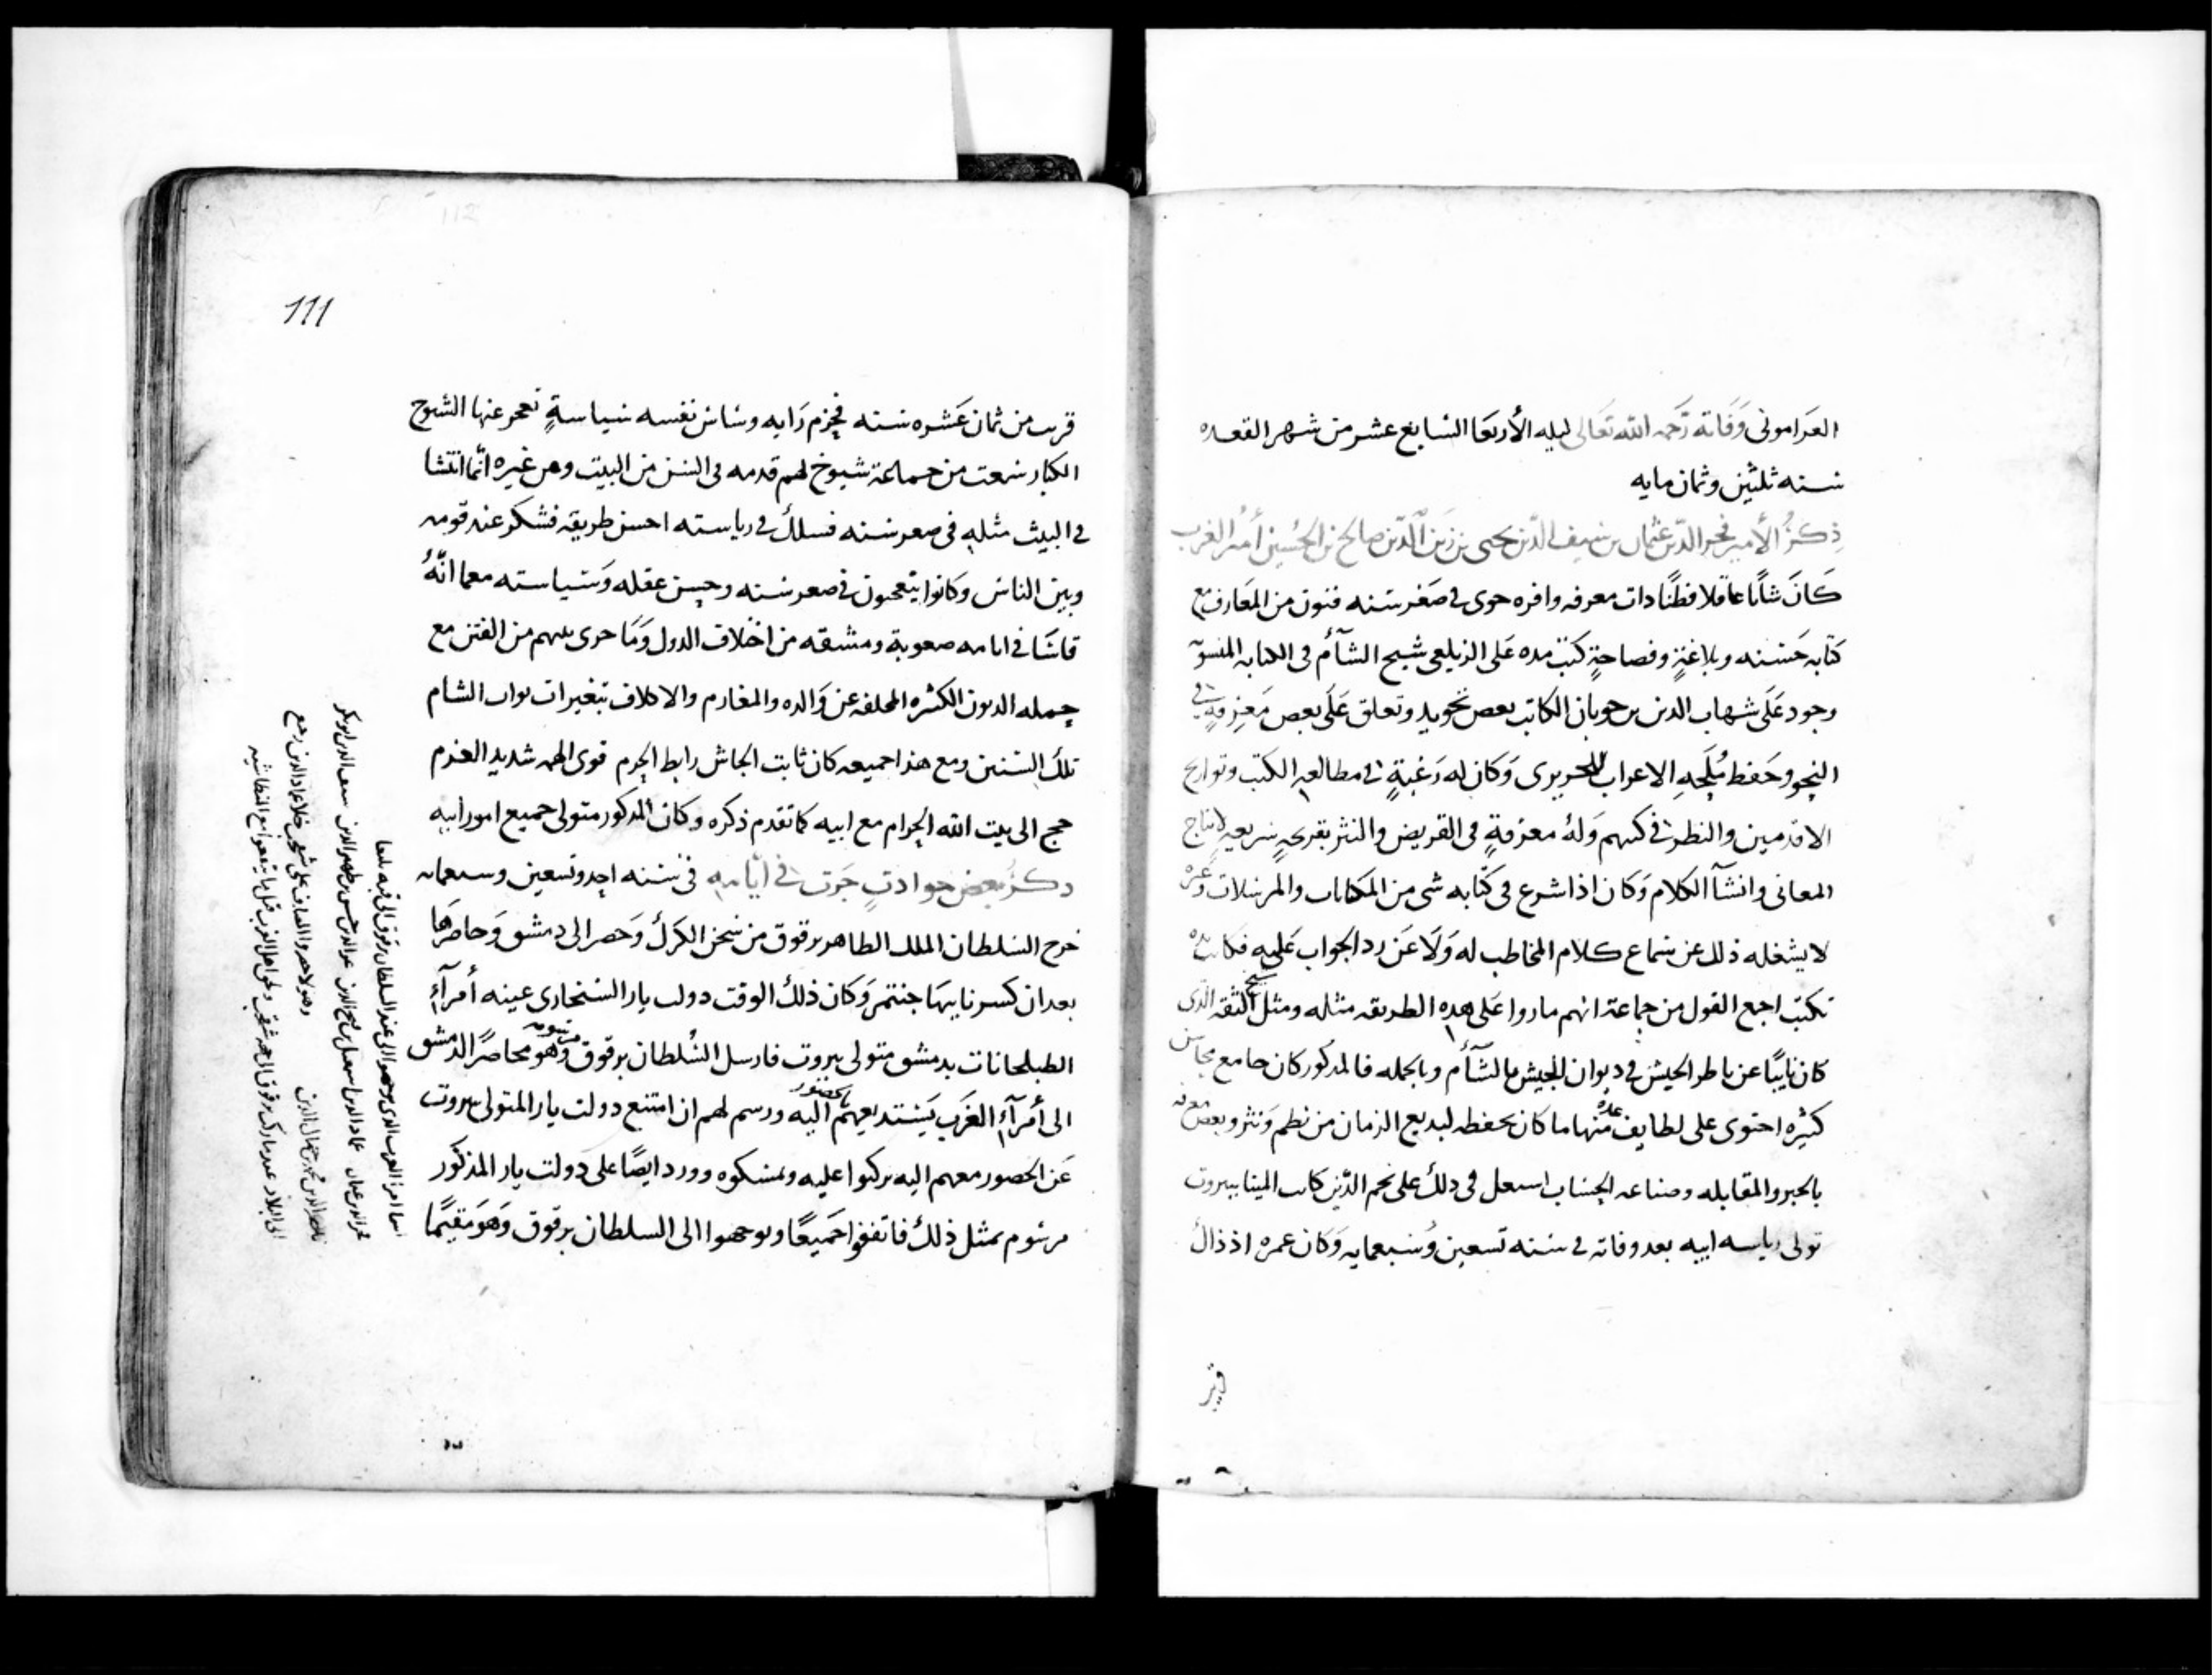 العرامونى وَفَاته رَحمه الله تعَالى ليله الأربعَا السَابع عشر من شهر القعده
سنه ثلثين وثمان مايه
ذِكرُ الأمير فخر الدّين عثمان بن سَيف الدّين يحيى بن زَين الدّين صالح بن الحُسين أمير الغرب
كَانَ شابًا عاقلا فطنًا دات معرفه وافره حوى فى صغر سنه فنون من المعَارف مع
كتابه حَسَنه وبلاغةٍ وفصاحةٍ كتب مده عَلى الزيلعى شيخ الشآم فى الكتابه المنسوبه
وجود عَلَى شهاب الدين بن حوبان الكاتب بعض تجويد وتعلق عَلَى بعض مَعرفةٍ فى
النحو وحَفظ مُلَحهِ الاعراب للحريرى وَكان له رَغبةٍ فى مطالعه الكتب وتواريخ
الاقدمين والنظر فى كتبهم وَلهُ معرفةٍ فى القريض والنثر بقريحهٍ سريعهٍ لانتاج
المعانى وانشآ الكلام وَكان اذا شرع فى كتابه شى من المكاتبات والمرسلات وغيره
لا يشغله ذلك عن سَماع كلام المخاطب له وَلَا عَن رد الجواب عَليه فكانت يده
تكتب اجمع القول من جماعة انهم ما راوا عَلى هذه الطريقه مثله ومثل الشيخ الثقه الذى
كان نايبًا عن ناظر الجيش فى ديوان الجيش بالشآم وبالجمله فالمدكور كان جامع محاسن
كثيره احتوى على لطايف عده منها ما كان يحفظه لبديع الزمان من نظم وَنثر وبعض معرفه
بالجبر والمقابله وصناعه الحسَاب اسعل فى دلك على نجم الدّين كاتب المينا ببيروت
تولى رياسه ابيه بعد وفاته فى سنه تسعين وَسَبعمايه وَكان عمره اذ ذاك
قريب
111
قريب من ثمان عَشره سَنه فجزم رَايه وسَاس نفسه سَياسةٍ تعجز عنها الشيوخ
الكبار سَمعت من جماعة شيوخ لهم قدمه فى السن من البيت ومن غيره انّما انتشا
فى البيت مثله فى صغر سَنه فسلك فى رياسته احسن طريقه فشكر عند قومه
وبين الناس وَكانوا يتعجبون فى صغر سنه وحسن عقله وَسَياسته معما انّهُ
قاسَا فى ايامه صعوبة ومشقه من اختلاف الدول وَمَا جرى بينهم من الفتن مع
جمله الديون الكثيره المخلفة عن وَالده والمغارم والاكلاف بتغيرات نواب الشام
تلك السَنين ومع هذا جميعه كان ثابت الجاش رابط الجرم قوى الهمه شديد العزم
حج الى بيت الله الحرام مع ابيه كما تقدم ذكره وكان المدكور متولى جميع امور ابيه
دكرُ بعض حوادثٍ جَرت فى أيامه فى سَنه احد وتسعين وسبعمايه
خرج السَلطان الملك الظاهر برقوق من سَجن الكرك وَحضر الى دمشق وَحاصرَها
بعد ان كسر نايبها جنتمر وَكان ذلك الوقت دولت يار السنجارى عينه أمرآءِ
الطبلخانات بدمشق متولى بيروت فارسل السُلطان برقوق مرسومه وهو محاصرًا لدمشق
الى أمرآءِ الغَرب يَستدعيهم بالحضور اليه ورسم لهم ان امتنع دولت يار المتولى ببيروت
عَن الحضور معهم اليه يركبوا عليه ويمسكوه وورد ايضًا على دولت يار المذكور
مرسوم بمثل ذلك فاتفقوا جَميعًا وتوجهوا الى السلطان برقوق وَهوَ مقيمًا
اسما امرا الغرب الدى توجهوا الى عند السلطان برقوق الى قبه يلبغا
فخر الدين عثمان عماد الدين اسمعيل بن فتح الدين عز الدين حسن بن ظهير الدين سيف الدين ابو بكر
ناصر الدين محمد بن جمال الدين وهولا حضروا المصاف على شقحب خلا عماد الدين رجع
الى البلاد عندما ركب برقوق الى جهه شقحب